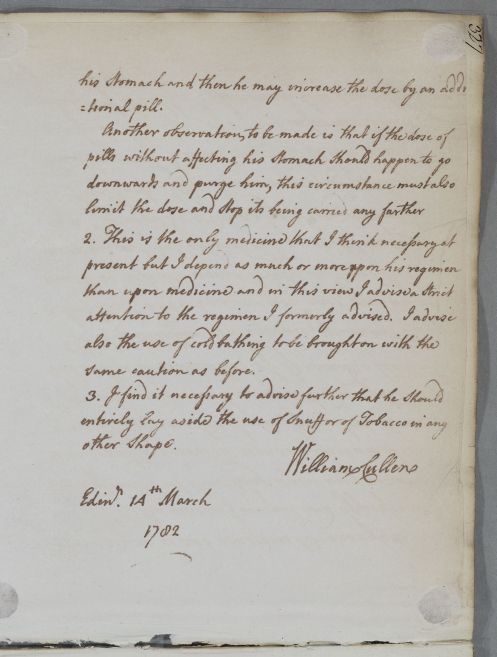 327
his Stomach and then he may increase the dose by an addi
=tional pill.
Another observation to be made is that if the dose of
pills without affecting his Stomach should happen to go
downwards and purge him, this circumstance must also
limit the dose and stop its being carried any farther
2. This is the only medicine that I think necessary at
present but I depend as much or more upon his regimen
than upon medicine and in this view I advise a strict
attention to the regimen I formerly advised. I advise
also the use of cold bathing to be brought on with the
same caution as before.
3. I find it necessary to advise further that he should
entirely Lay aside the use of Snuff or of Tobacco in any
other Shape.
William Cullen
Edinr. 14th March
1782